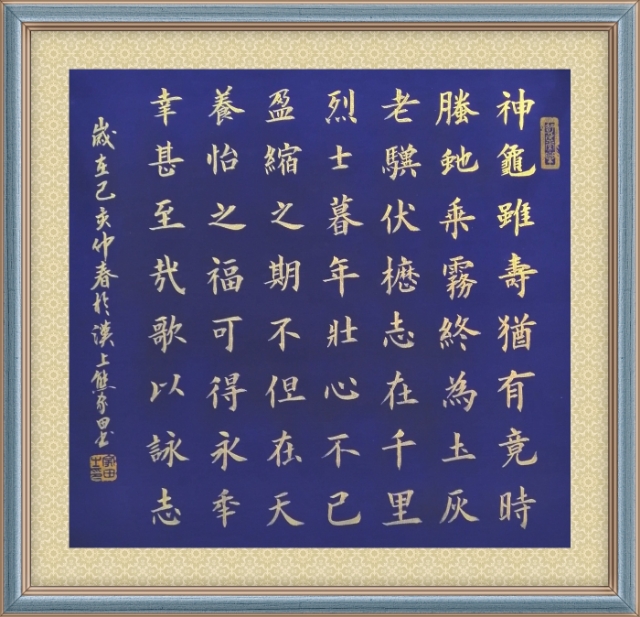 神龜雖壽猶有竟時
螣虵乘霧終為土灰
老驥伏櫪志在千里
烈士暮年壯心不已
盈縮之期不但在天
養怡之福可得永秊
幸甚至哉歌以詠志
歲在己亥仲春於漢上熊家田書